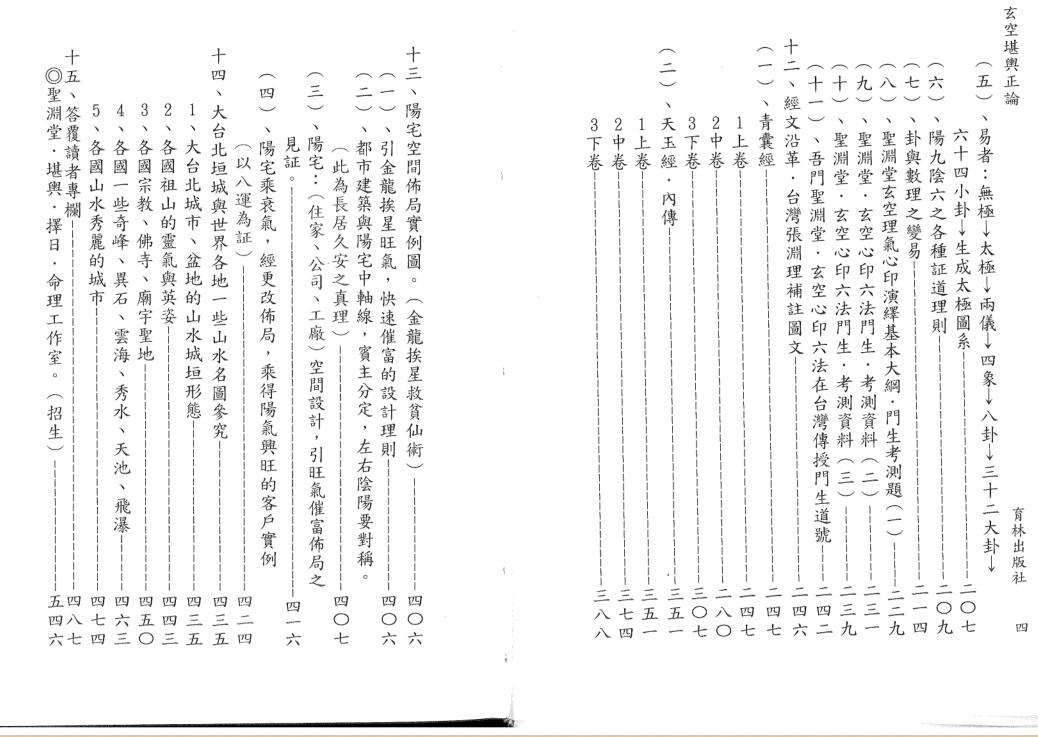 玄空堪輿正論
育林出版社
四
（五）、易者：無極→太極→兩儀→四象→八卦→三十二大卦→
六十四小卦→生成太極圖系------二〇七
（六）、陽九陰六之各種証道理則------二〇九
（七）、卦與數理之變易------二一四
（八）、聖淵堂玄空理氣心印演繹基本大綱．門生考測題（一）------二二九
（九）、聖淵堂．玄空心印六法門生．考測資料（二）------二三一
（十）、聖淵堂．玄空心印六法門生．考測資料（三）------二三九
（十一）、吾門聖淵堂．玄空心印六法在台灣傳授門生道號------二四二
十二、經文沿革．台灣張淵理補註圖文------二四六
（一）、青囊經------二四七
1上卷------二四七
2中卷------二八〇
3下卷------三〇七
（二）、天玉經．內傳------三五一
1上卷------三五一
2中卷------三七四
3下卷------三八八
十三、陽宅空間佈局實例圖。（金龍挨星救貧仙術）------四〇六
（一）、引金龍挨星旺氣，快速催富的設計理則------四〇六
（二）、都市建築與陽宅中軸線，賓主分定，左右陰陽要對稱。
（此為長居久安之真理）------四〇七
（三）、陽宅：（住家、公司、工廠）空間設計，引旺氣催富佈局之
見証。------四一六
（四）、陽宅乘衰氣，經更改佈局，乘得陽氣興旺的客戶實例
（以八運為証）------四二四
十四、大台北垣城與世界各地一些山水名圖參究------四三五
1、大台北城市、盆地的山水城垣形態------四三五
2、各國祖山的靈氣與英姿------四四三
3、各國宗教、佛寺、廟宇聖地------四五〇
4、各國一些奇峰、異石、雲海、秀水、天池、飛瀑------四六三
5、各國山水秀麗的城市------四七四
十五、答覆讀者專欄------四八七
◎聖淵堂．堪輿．擇日．命理工作室。（招生）------五四六